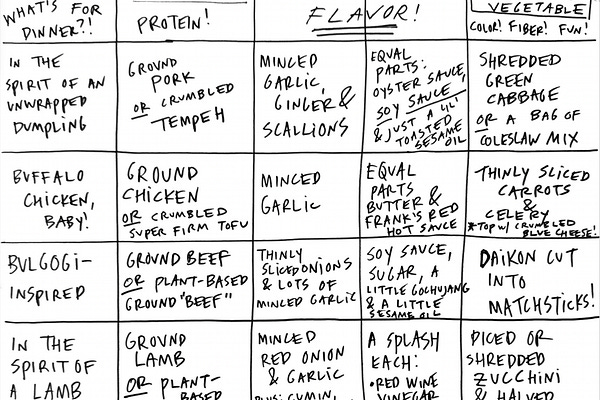 WHAT'S FOR
DINNER?!
PROTEIN!
FLAVOR!
VEGETABLE
COLOR! FIBER! FUN!
IN THE
SPIRIT OF AN
UNWRAPPED
DUMPLING
GROUND
PORK
OR CRUMBLED
TEMPEH
MINCED
GARLIC,
GINGER &
SCALLIONS
EQUAL
PARTS:
OYSTER SAUCE,
SOY SAUCE,
& JUST A LIL'
TOASTED
SESAME
OIL
SHREDDED
GREEN
CABBAGE
OR A BAG OF
COLESLAW MIX
BUFFALO
CHICKEN,
BABY!
GROUND
CHICKEN
OR CRUMBLED
SUPER FIRM TOFU
MINCED
GARLIC
EQUAL
PARTS
BUTTER &
FRANK'S RED
HOT SAUCE
THINLY SLICED
CARROTS
&
CELERY
*TOP W/ CRUMBLED
BLUE CHEESE!
BULGOGI-
INSPIRED
GROUND BEEF
OR PLANT-BASED
GROUND "BEEF"
THINLY
SLICED ONIONS
& LOTS OF
MINCED GARLIC
SOY SAUCE,
SUGAR, A
LITTLE GOCHUJANG
& A LITTLE
SESAME OIL
DAIKON CUT
INTO
MATCHSTICKS!
IN THE
SPIRIT OF
A LAMB
GROUND
LAMB
OR PLANT-
BASED
MINCED
RED ONION
& GARLIC
PLUS: CUMIN,
A SPLASH
EACH:
•RED WINE
VINEGAR
DICED OR
SHREDDED
ZUCCHINI
& HALVED